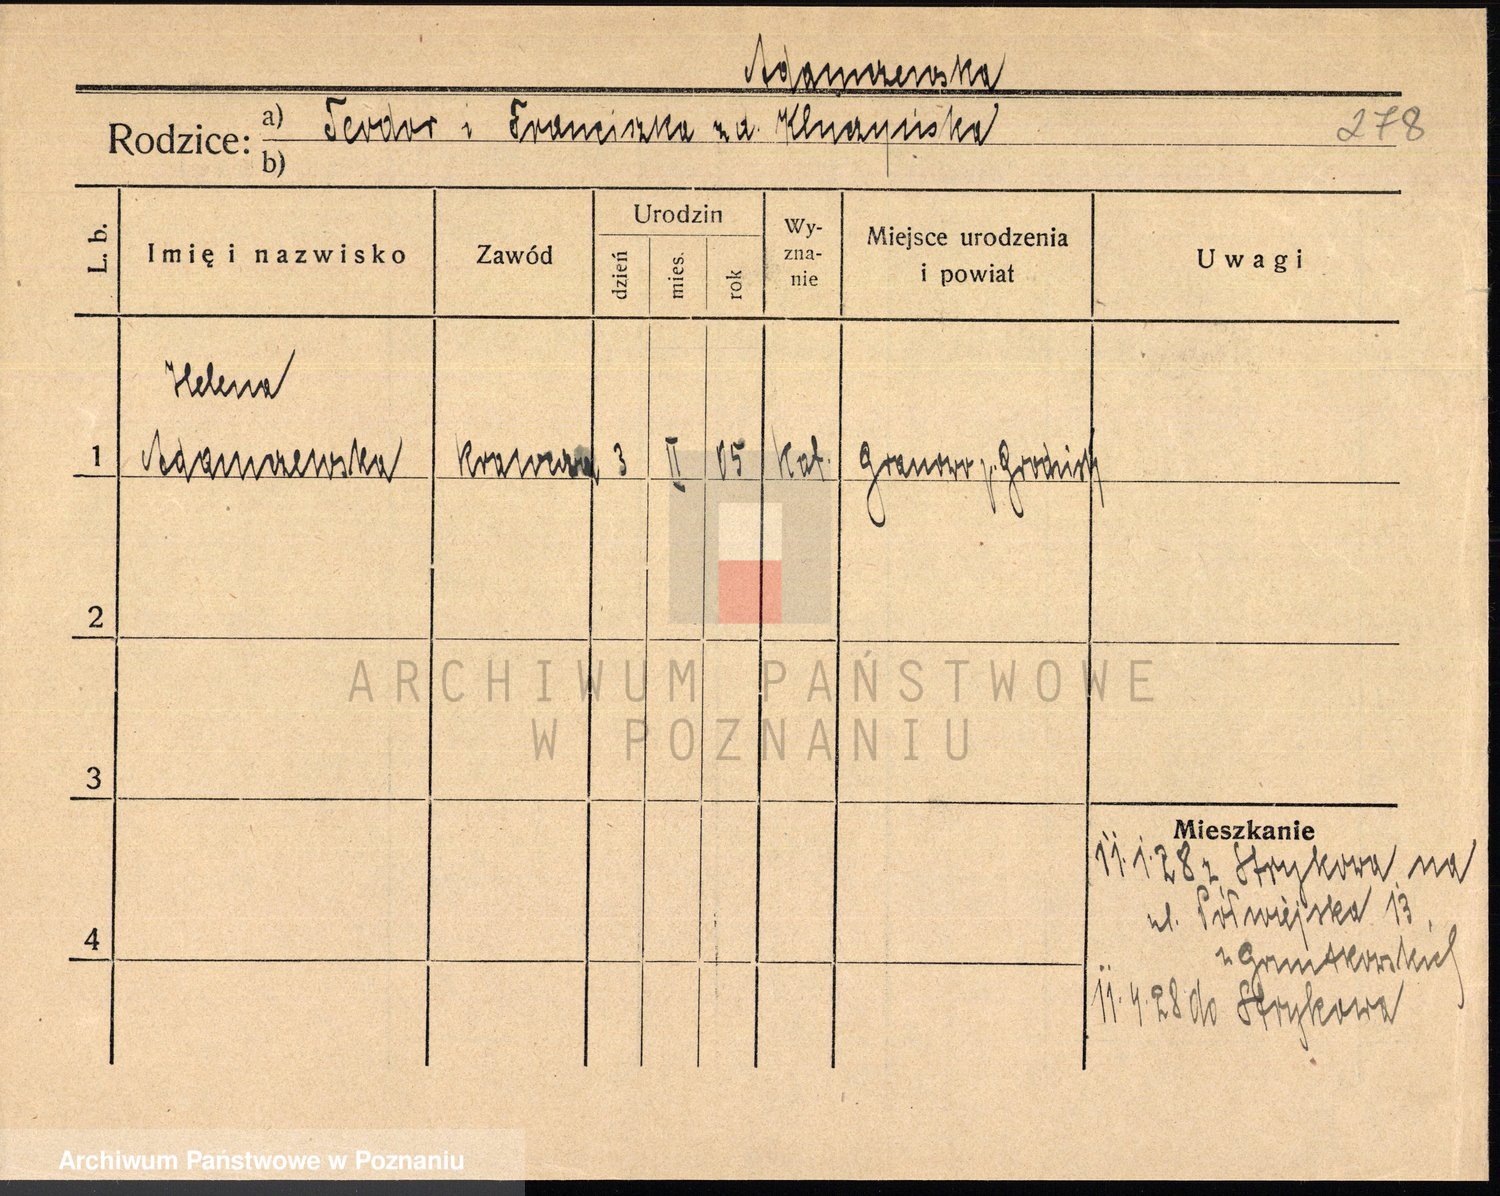 Adamczewska
Rodzice: a) Teodor i Franciszka z d. Kluczyńska
b)
278
L. b.
Imię i nazwisko
Zawód
Urodzin
dzień
mies.
rok
Wy-
zna-
nie
Miejsce urodzenia
i powiat
Uwagi
Helena
1 Adamczewska krawcowa 3 II 05 kat. Granowo p. Grodzisk
2
3
4
Mieszkanie
11.1.28 z Strykowa na
ul. Półwiejska 13
11.4.28 do Strykowa
ARCHIWUM PAŃSTWOWE
W POZNANIU
Archiwum Państwowe w Poznaniu